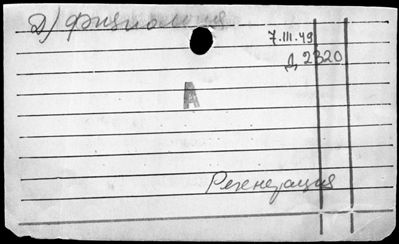 Д) физиология
7.III.49
Д 2320
А
Регенерация